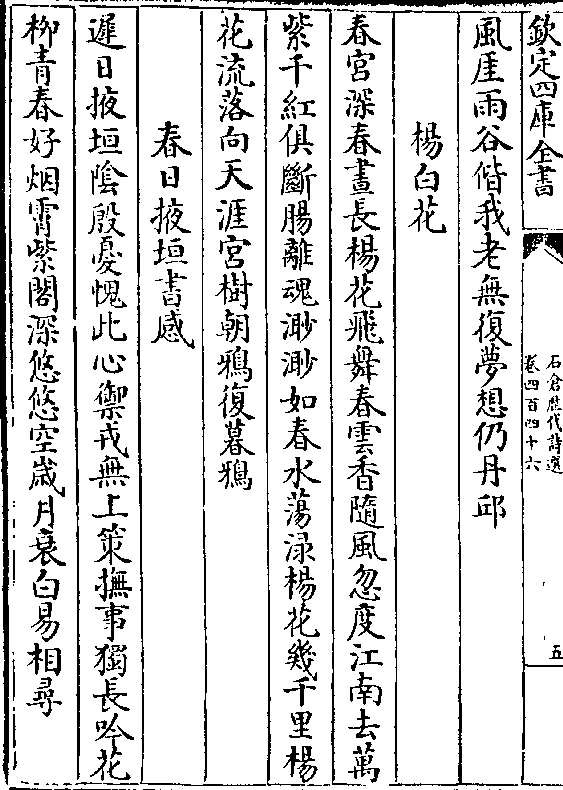 欽定四庫全書
石倉歷代詩選
卷四百四十六
五
風厓雨谷偕我老無復夢想仍丹邱
楊白花
春宮深春晝長楊花飛舞春雲香隨風忽度江南去萬
紫千紅俱斷腸離魂渺渺如春水蕩渌楊花幾千里楊
花流落向天涯宮樹朝鴉復暮鴉
春日掖垣書感
遲日掖垣陰殷憂愧此心禦戎無上策撫事獨長吟花
柳青春好烟霄紫閣深悠悠空歲月衰白易相尋